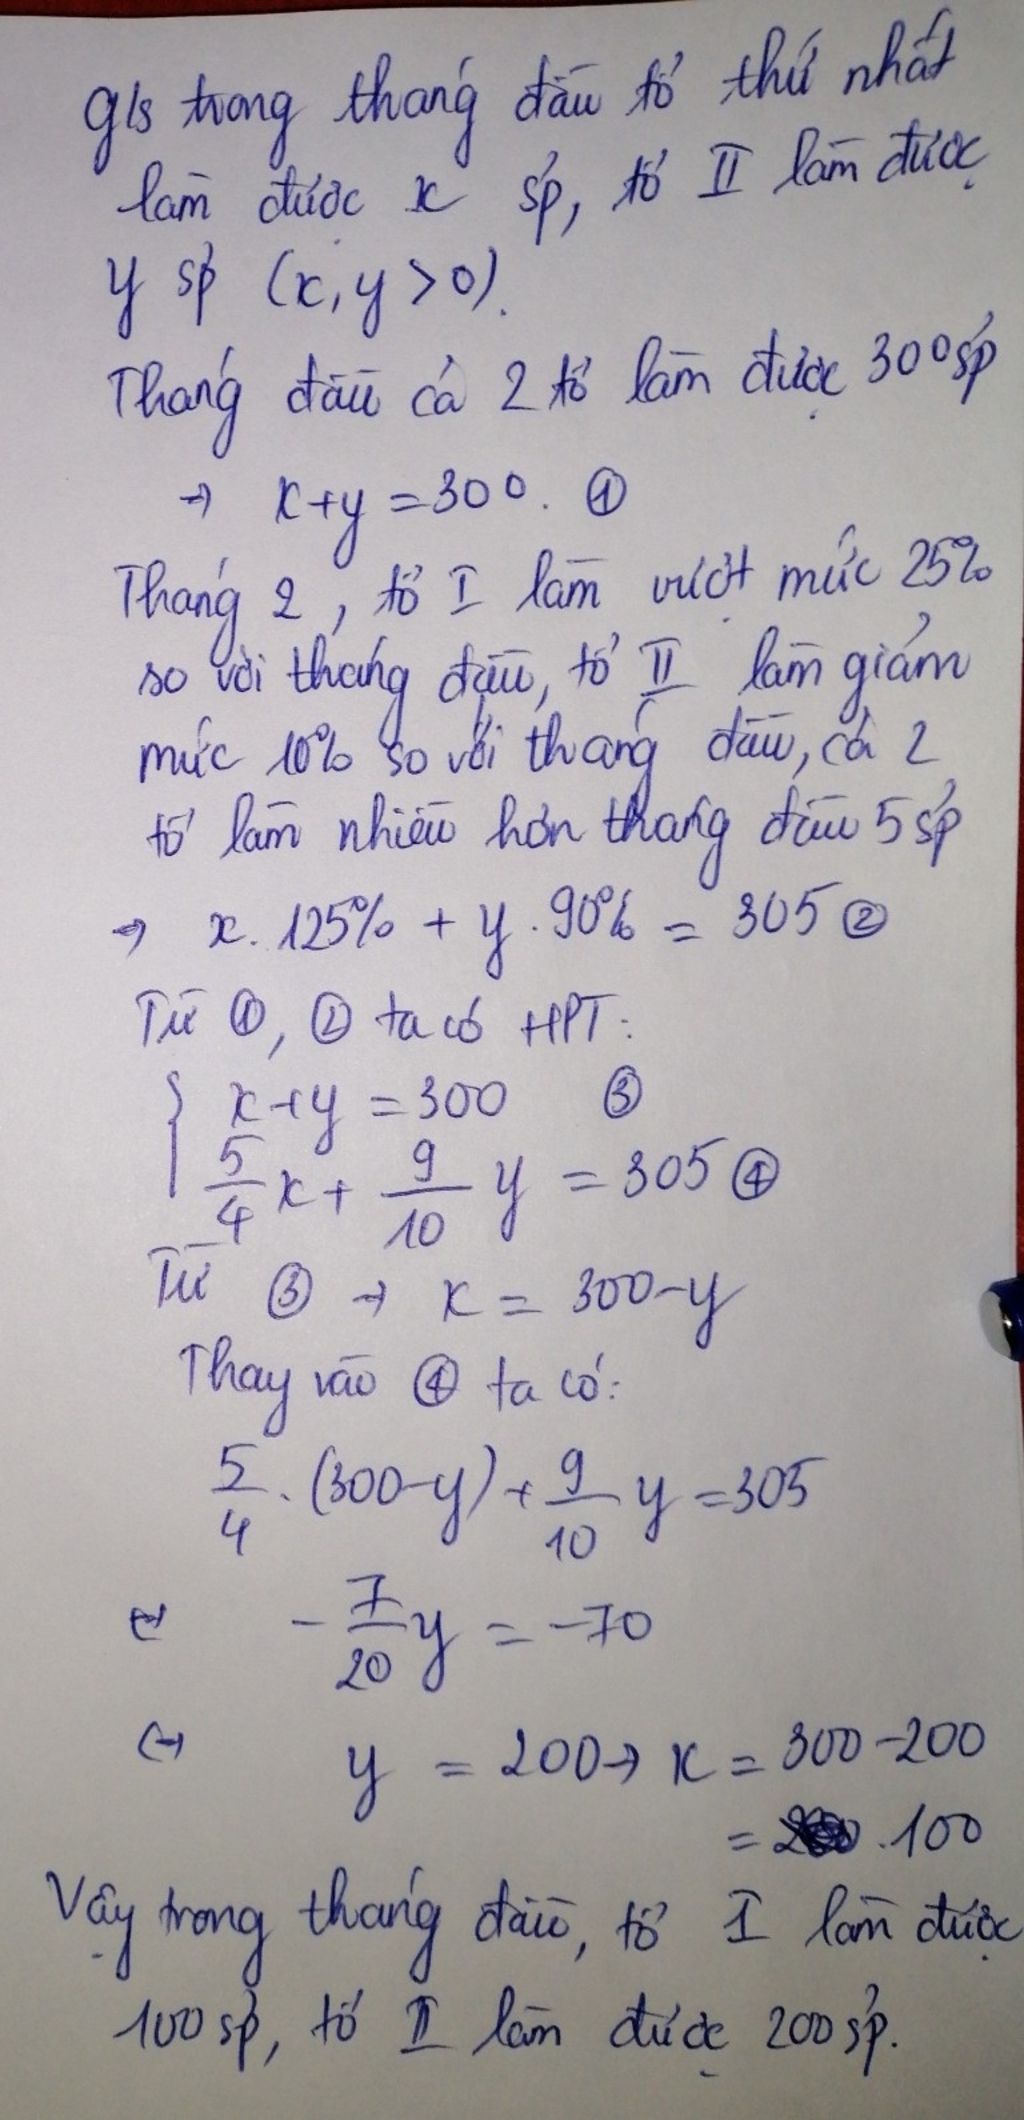 g/s trong tháng đầu tổ thứ nhất
làm được x sp, tổ II làm được
y sp (x, y > 0).
Tháng đầu cả 2 tổ làm được 300 sp
→ x + y = 300. ①
Tháng 2, tổ I làm vượt mức 25%
so với tháng đầu, tổ II làm giảm
mức 10% so với tháng đầu, cả 2
tổ làm nhiều hơn tháng đầu 5 sp
→ x. 125% + y. 90% = 305 ②
Từ ①, ② ta có HPT:
{ x + y = 300 ③
5/4 x + 9/10 y = 305 ④
Từ ③ → x = 300 - y
Thay vào ④ ta có:
5/4 . (300 - y) + 9/10 y = 305
↔ - 7/20 y = -70
↔ y = 200 → x = 300 - 200
= 100
Vậy trong tháng đầu, tổ I làm được
100 sp, tổ II làm được 200 sp.